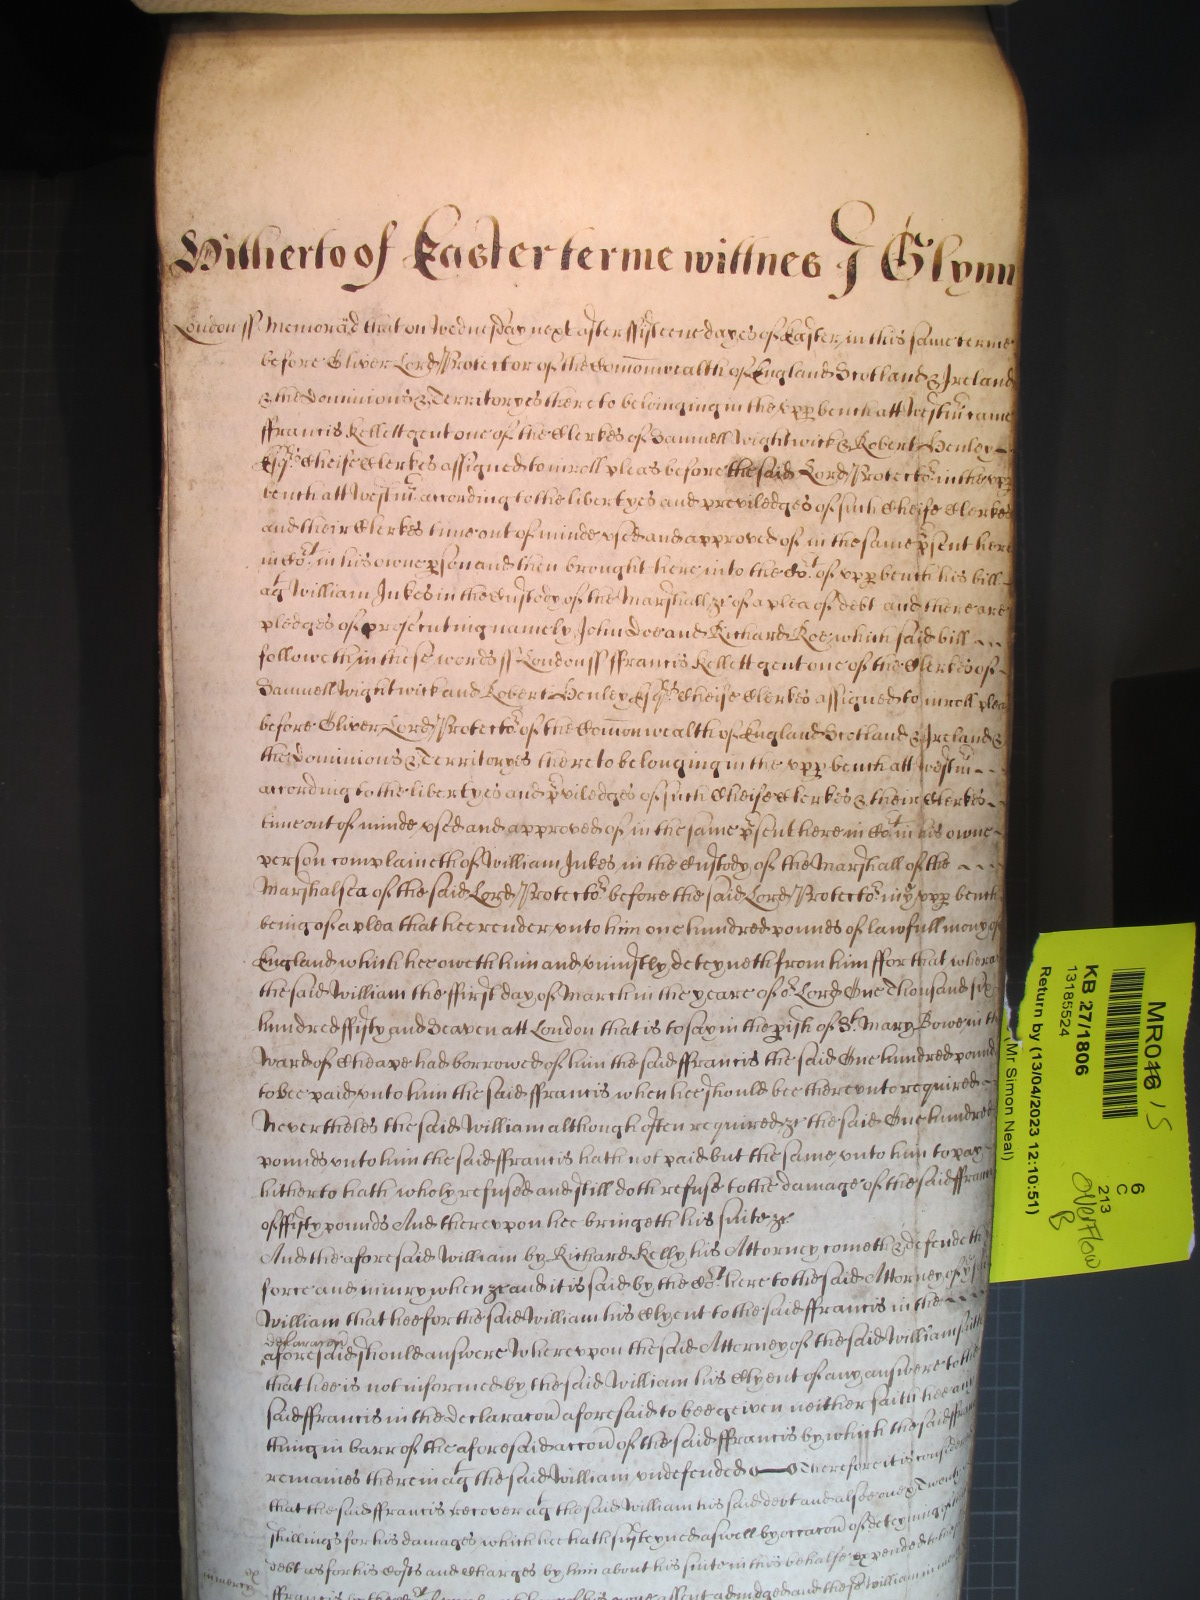 Hitherto of Easter terme wittnes J Glynn
London ss Memorad that on Wednesday next after fifteene dayes of Easter in this same terme
before Oliver Lord Protector of the Comonwealth of England Scotland & Ireland
& the Dominions & Territoryes thereto belonging in the vpp bench att Westm came
ffrancis Kellett gent one of the Clerkes of Samuell Wightwick & Robert Henley
Esqrs Cheife Clerkes assigned to inroll pleas before the said Lord Protector in the vpp
bench att Westm according to the libertyes and previledges of such Cheife Clerkes
and their Clerkes time out of minde vsed and approved of in the same psent here
in Cot in his owne pson and then brought here into the Cot of vpp bench his bill
agt William Jukes in the Custody of the Marshall &c of a plea of debt and there are
pledges of prosecuting namely John Doe and Richard Roe which said bill
followeth in these words ss London ss ffrancis Kellett gent one of the Clerkes of
Samuell Wightwick and Robert Henley Esqrs Cheife Clerkes assigned to inroll pleas
before Oliver Lord Protector of the Comonwealth of England Scotland & Ireland &
the Dominions & Territoryes thereto belonging in the vpp bench att Westm
according to the libertyes and pviledges of such Cheife Clerkes & their Clerkes
time out of minde vsed and approved of in the same psent here in Cot in his owne
person complaineth of William Jukes in the Custody of the Marshall of the
Marshalsea of the said Lord Protector before the said Lord Protector in ye vpp bench
being of a plea that hee render vnto him one hundred pounds of lawfull mony of
England which hee oweth him and vniustly deteyneth from him ffor that whereas
the said William the ffirst day of March in the yeare of or Lord One Thousand six
hundred ffifty and Seaven att London that is to say in the pish of St Mary Bowe in the
Ward of Cheape had borrowed of him the said ffrancis the said One hundred pounds
to bee paid vnto him the said ffrancis when hee should bee therevnto required
Nevertheles the said William although often required &c the said One hundred
pounds vnto him the said ffrancis hath not paid but the same vnto him to pay
hitherto hath wholy refused and still doth refuse to the damage of the said ffrancis
of ffifty pounds And therevpon hee bringeth his suite &c
And the aforesaid William by Richard Kelly his Attorney cometh & defendeth
force and iniury when &c and it is said by the Cot here to the said Attorney of ye said
William that hee for the said William his Clyent to the said ffrancis in the
declaracon
aforesaid should answere Wherevpon the said Attorney of the said William saith
that hee is not informed by the said William his Clyent of any answere to the
said ffrancis in the Declaracon aforesaid to bee geiven neither saith hee any
thing in barr of the aforesaid accon of the said ffrancis by which the said ffrancis
remaines therein agt the said William vndefended Therefore it is considered
that the said ffrancis recover agt the said William his said debt and alsoe one & Twenty
shillings for his damages which hee hath susteyned aswell by occacon of deteyning of
debt as for his Costs and Charges by him about his suite in this behalfe expended to the
in mercy
ffrancis by the Cot his owne assent adiudged and the said William in
MR046 15
KB 27/1806
13185524
Return by (13/04/2023 12:10:51)
(Mr Simon Neal)
6
C
213
Overflow
B